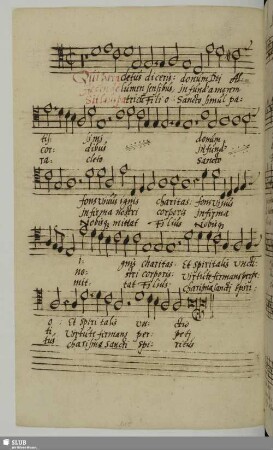 Qui paracletus diceris: donum Dei Al
Accende lumen sensibus, infunde amorem
Sit laus patri cu Filio Sancto simul pa-
tis simi donum
cor dibus infund
ra- cleto sancto
fons vivus ignis charitas. fons vivus
infirma nostri corporis infirma
Nobisq mittat Filius Nobisq
i- gnis charitas. Et spiritalis uncti
no- stri corporis. Virtute firmans perpe
mit- tat Filius Charisma sancti spiri-
o. Et spiritalis un- ctio
ti, Virtute firmans per- peti
tus charisma sancti Spi- ritus
SLUB